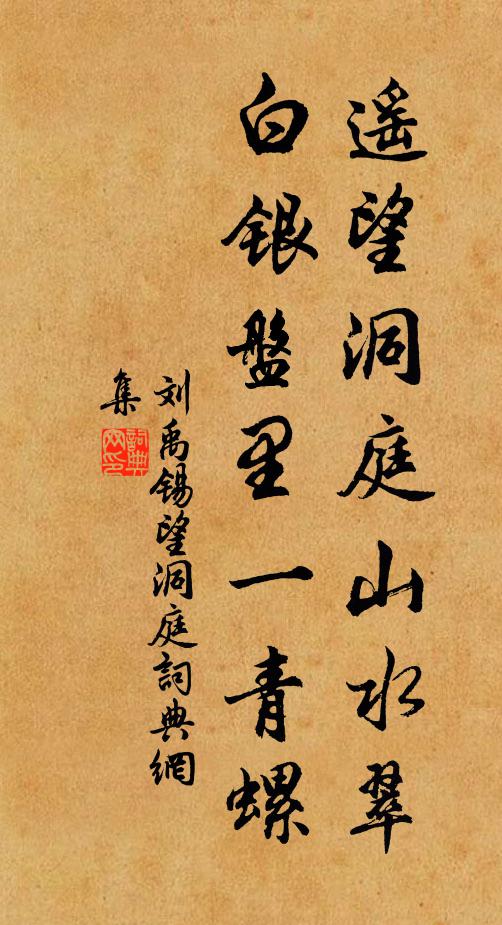 遥望洞庭山水翠
白银盘里一青螺
刘禹锡望洞庭詞典網
集
詞典
网印